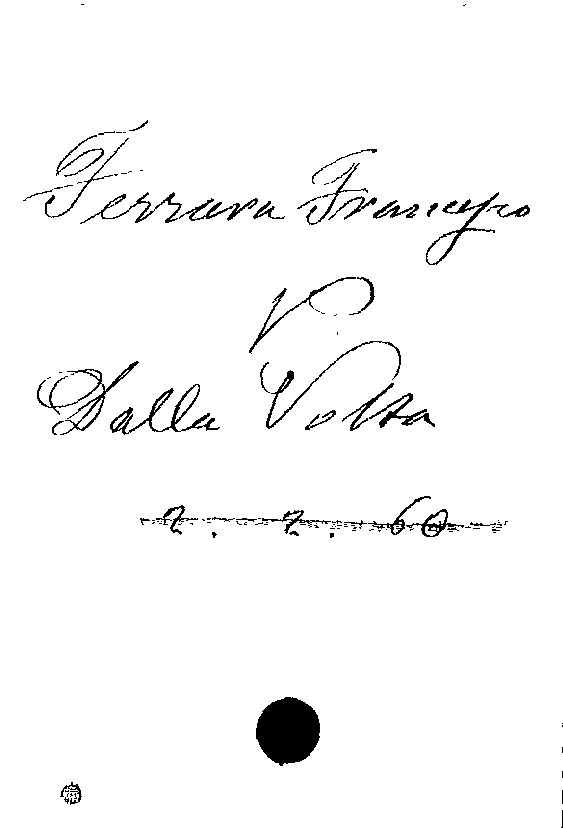 Ferrara Francesco
V.
Dalla Volta
2. 2. 60